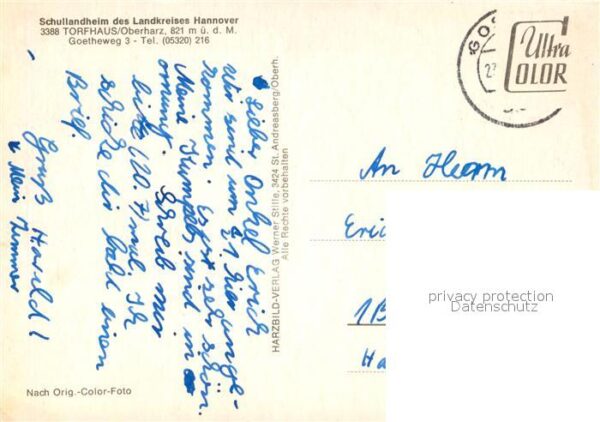 Schullandheim des Landkreises Hannover
3388 TORFHAUS/Oberharz, 821 m ü. d. M.
Goetheweg 3 - Tel. (05320) 216
Lieber Onkel Erich
Wir sind um 21. hier ange-
kommen. Es ist sehr schön.
Meine Kumpels sind in
ornung. Schreib mir
bitte (20. 7) mal. Ich
schicke dir bald einen
Brief.
Gruß Harald!
x Mein Zimmer
HARZBILD-VERLAG Werner Stille, 3424 St. Andreasberg/Oberh.
Alle Rechte vorbehalten
GOS
Ultra
COLOR
An Herrn
Eric
1B
Ha
privacy protection
Datenschutz
Nach Orig.-Color-Foto